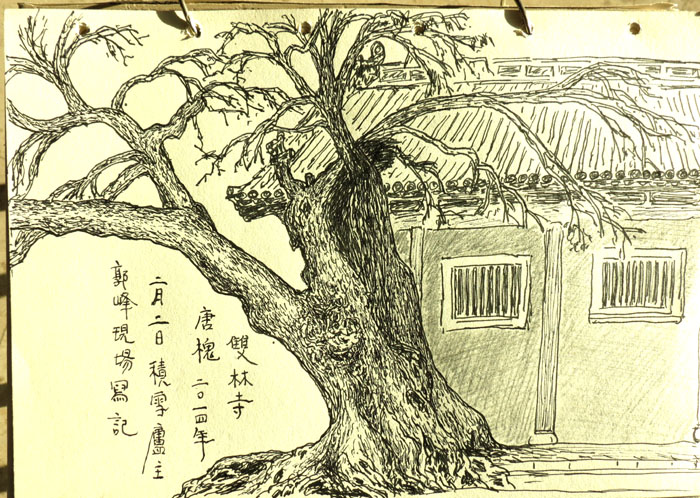 雙林寺
唐槐 二〇一四年
二月二日 積雪廬主
郭峰現場寫記